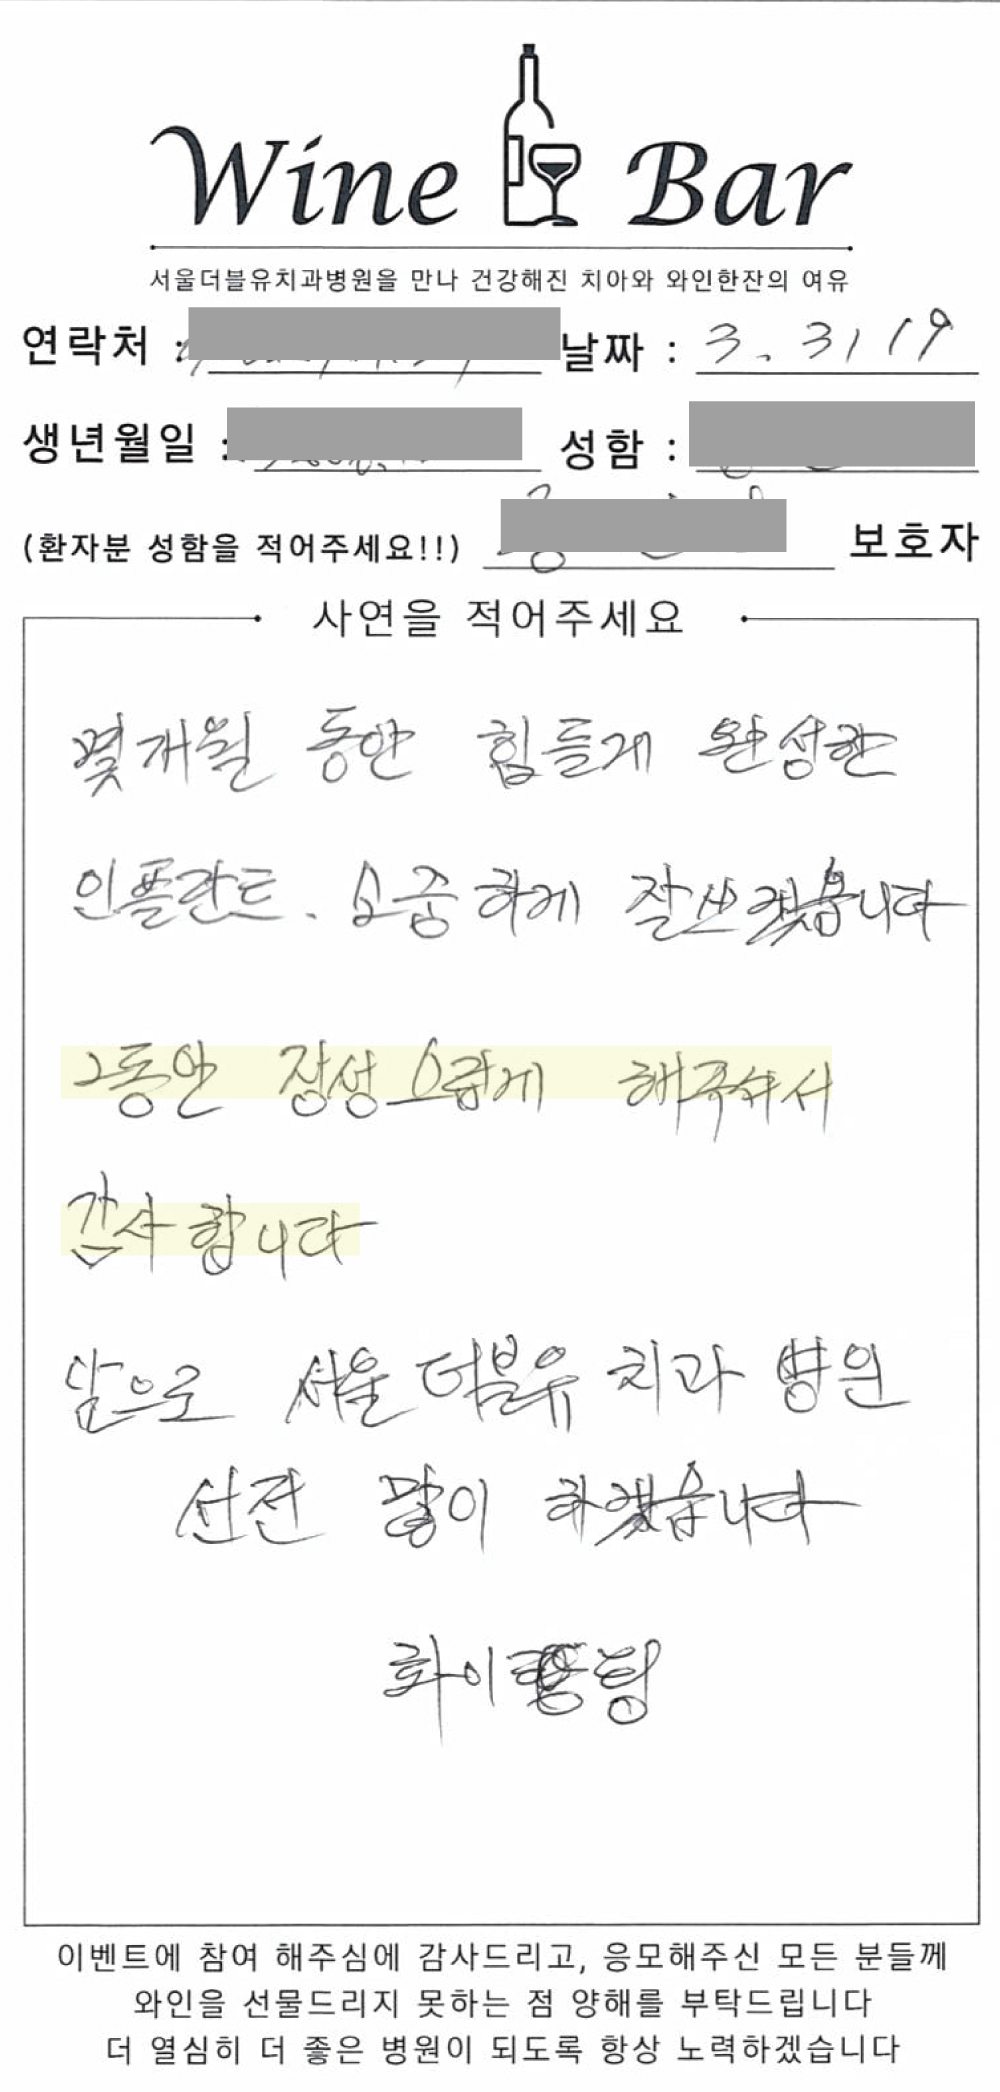 Wine Bar
서울더블유치과병원을 만나 건강해진 치아와 와인한잔의 여유
연락처 : 날짜 : 3. 31 19
생년월일 : 성함 :
(환자분 성함을 적어주세요!!) 보호자
사연을 적어주세요
몇개월 동안 힘들게 완성한
인플란트. 소중하게 잘쓰겠습니다
그동안 정성스럽게 해주셔서
감사합니다
앞으로 서울더블유치과병원
선전 많이 하겠습니다
화이팅
이벤트에 참여 해주심에 감사드리고, 응모해주신 모든 분들께
와인을 선물드리지 못하는 점 양해를 부탁드립니다
더 열심히 더 좋은 병원이 되도록 항상 노력하겠습니다